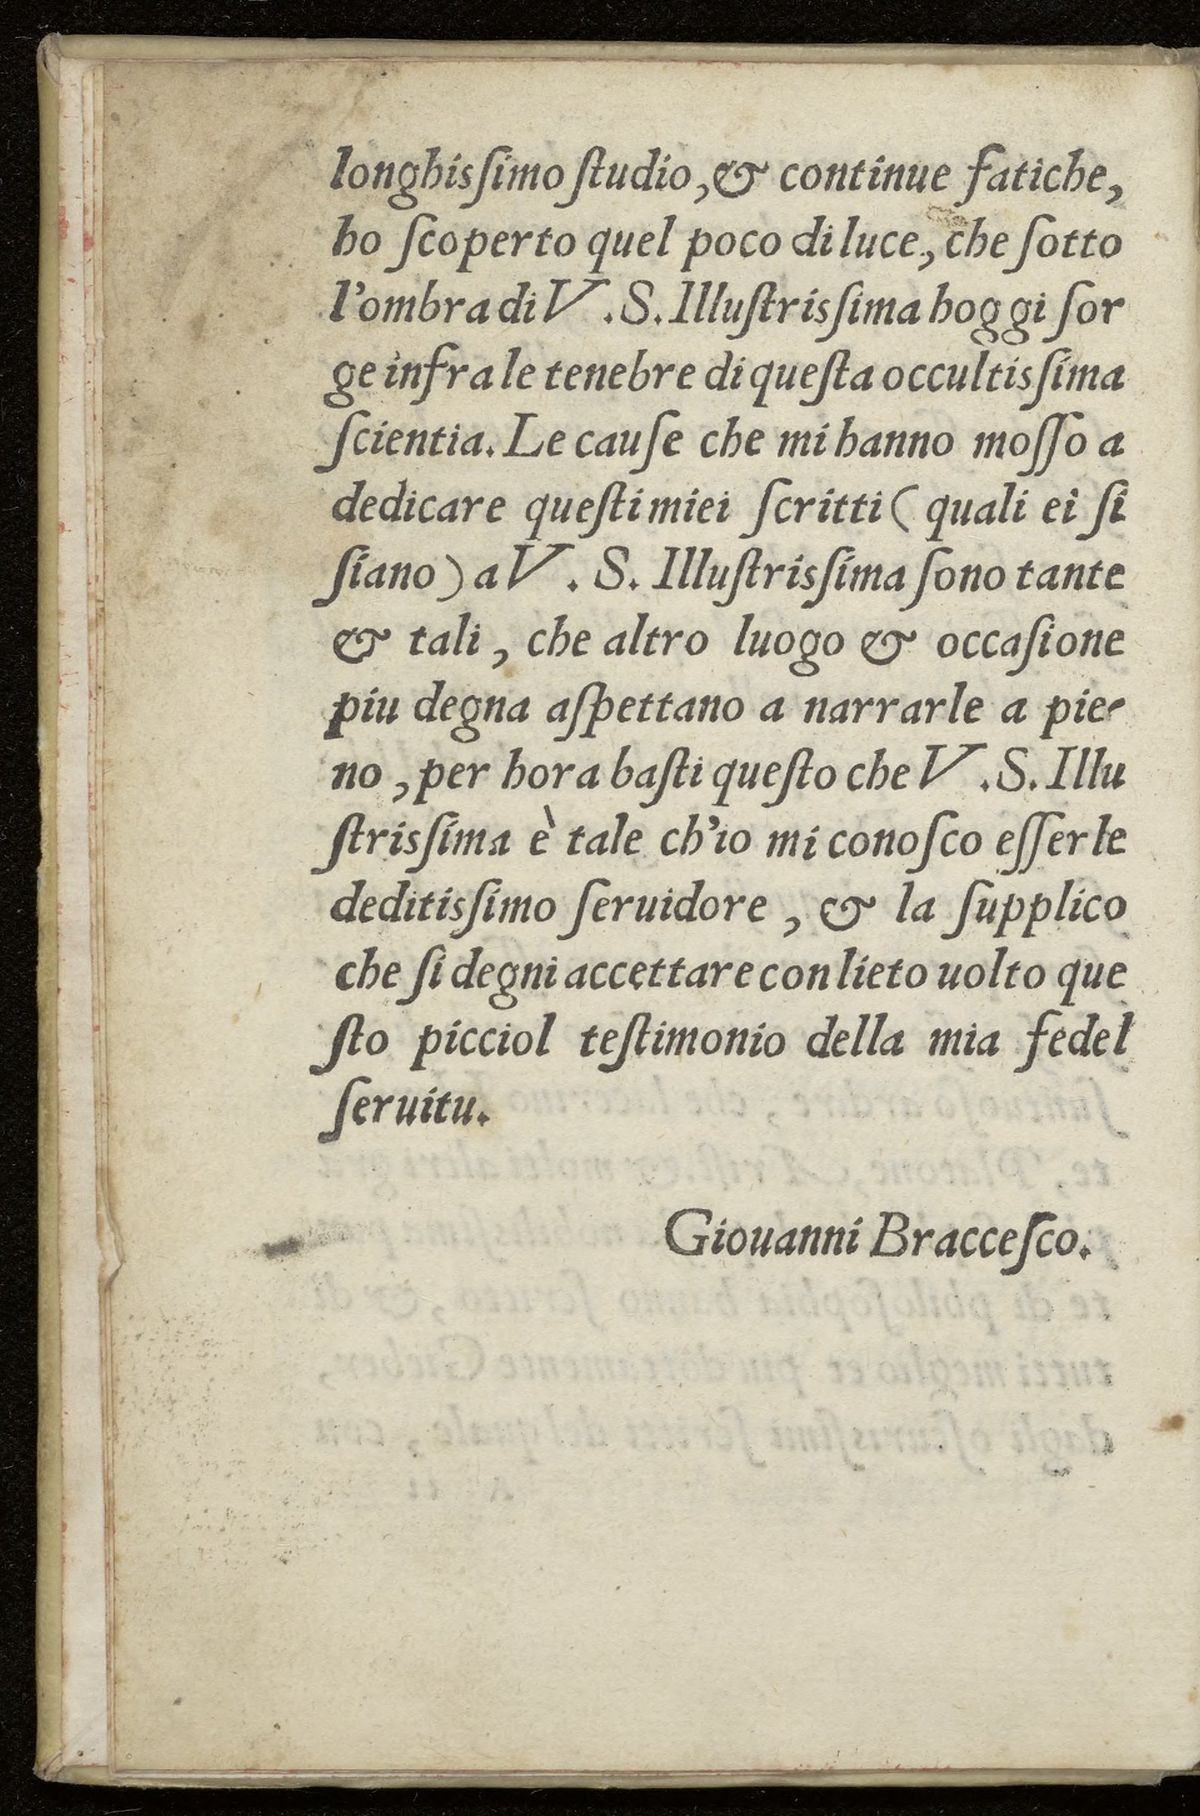 longhisſimo ſtudio, & continue fatiche,
ho ſcoperto quel poco di luce, che ſotto
l'ombra di V. S. Illuſtrisſima hoggi ſor
ge infra le tenebre di queſta occultisſima
ſcientia. Le cauſe che mi hanno moſſo a
dedicare queſti miei ſcritti (quali ei ſi
ſiano) a V. S. Illuſtrisſima ſono tante
& tali, che altro luogo & occaſione
piu degna aſpettano a narrarle a pie-
no, per hora baſti queſto che V. S. Illu
ſtrisſima è tale ch'io mi conoſco eſſerle
deditisſimo ſeruidore, & la ſupplico
che ſi degni accettare con lieto uolto que
ſto picciol teſtimonio della mia fedel
ſeruitu.
Giouanni Bracceſco.